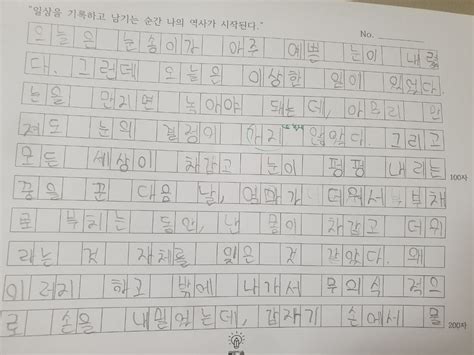 "일상을 기록하고 남기는 순간 나의 역사가 시작된다."
No.
오늘은 눈송이가 아주 예쁜 눈이 내렸
다. 그런데 오늘은 이상한 일이 있었다.
눈을 만지면 녹아야 돼는데, 아무리 만
져도 눈의 결정이 않았다. 그리고
모든 세상이 차갑고 눈자 펑펑 내리는 100자
꿈을 꾼 다음 날, 엄마가 더워서 부채
로 부치는 동안, 난 몸이 차갑고 더위
라는 것 자체를 잊은 것 같았다. 왜
이러지 하고 밖에 나가서 무의식 적으
로 손을 내밀었는데, 갑자기 손에서 물 200자